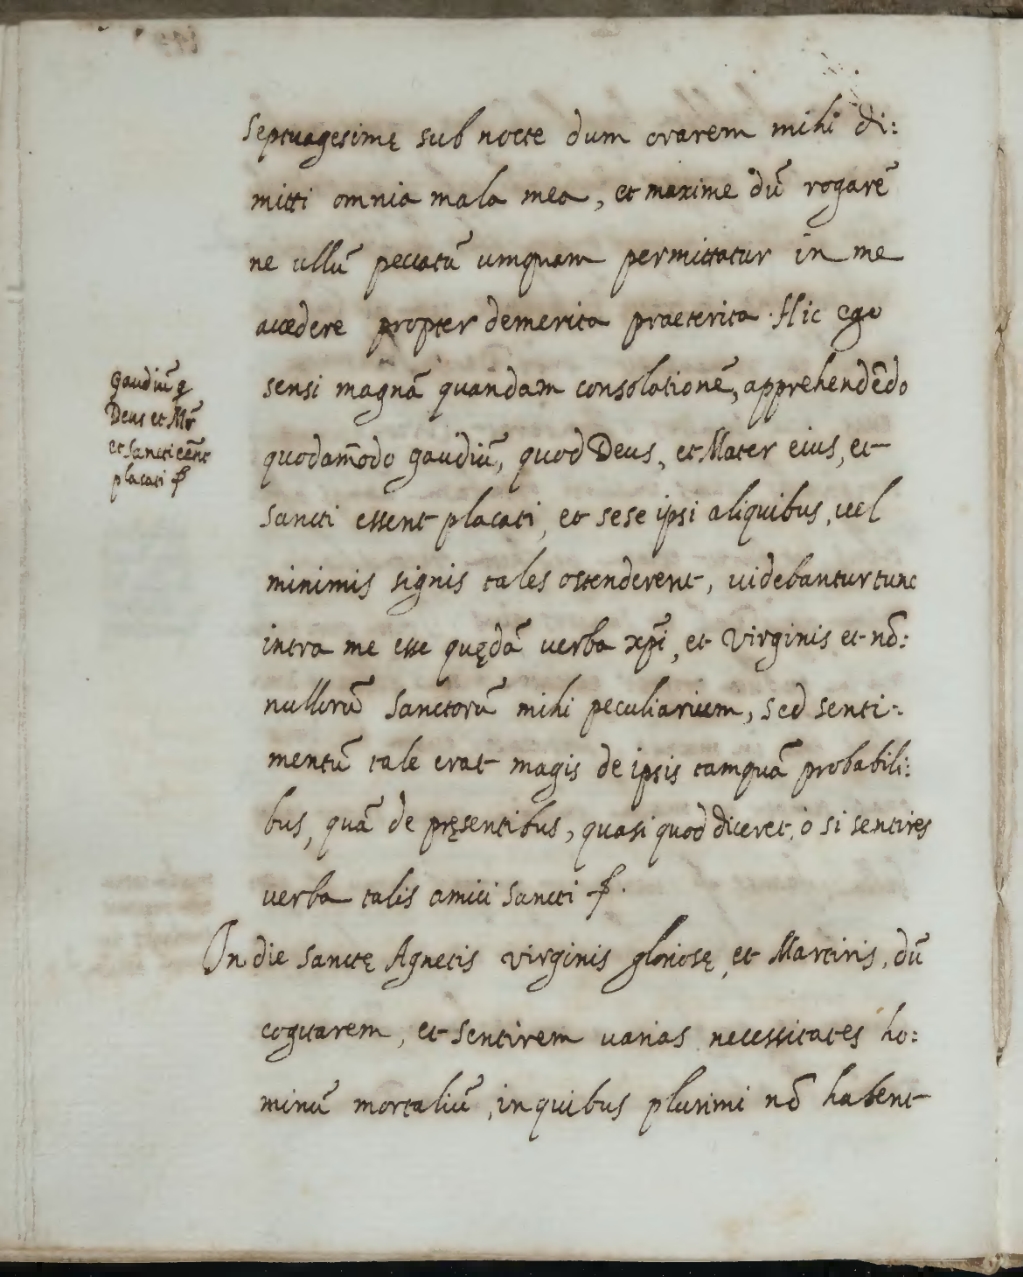 Septuagesimę sub nocte dum orarem mihi di:
mitti omnia mala mea, et maxime dũ rogarẽ
ne ullũ peccatũ umquam permittatur in me
accedere propter demerita praeterita. Hic ego
sensi magnã quandam consolationẽ, apprehendẽdo
quodam̃odo gaudiũ, quod Deus, et Mater eius, et
Sancti essent placati, et sese ipsi aliquibus, uel
minimis signis tales ostenderent, uidebantur tunc
intra me esse quędã verba xp̃i, et Virginis et nõ:
nullorũ Sanctorũ mihi peculiarium, sed senti:
mentũ tale erat magis de ipsis tamquã probabili:
bus, quã de pręsentibus, quasi quod diceret, ò si sentires
verba talis amici Sancti
In die Sanctę Agnetis virginis gloriosę, et Martiris, dũ
cogitarem, et sentirem varias necessitates ho:
minũ mortaliũ, in quibus plurimi nõ habent
gaudiũ q̃
Deus et Mr̃
et Sancti eẽnt
placati